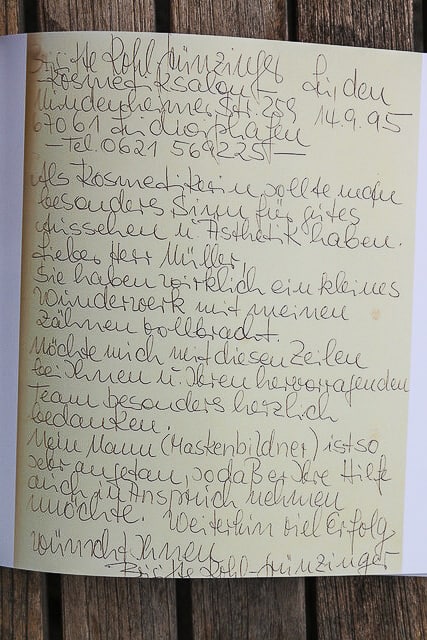 Brigitte Kohl-Münzinger
Kosmetiksalon Lu, den
Mundenheimer Str. 259 14.9.95
67061 Ludwigshafen
— Tel. 0621 569225 —
Als Kosmetikerin sollte man
besonders Sinn für gutes
Aussehen u. Ästhetik haben.
Lieber Herr Müller,
Sie haben wirklich ein kleines
Wunderwerk mit meinen
Zähnen vollbracht.
Möchte mich mit diesen Zeilen
bei Ihnen u. Ihren hervorragenden
Team besonders herzlich
bedanken.
Mein Mann (Maskenbildner) ist so
sehr angetan, sodaß er Ihre Hilfe
auch in Anspruch nehmen
möchte. Weiterhin viel Erfolg
wünscht Ihnen
Brigitte Kohl-Münzinger